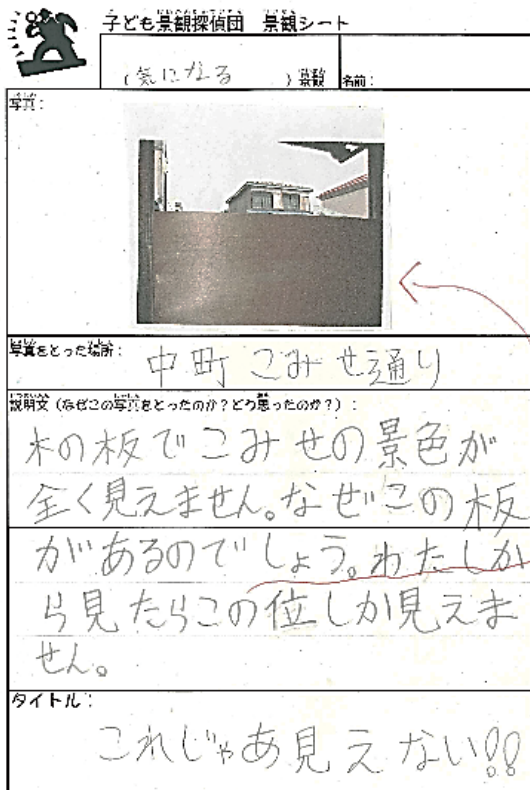 子ども景観探偵団 景観シート
(気になる)景観 名前:
写真:
写真をとった場所: 中町こみせ通り
説明文(なぜこの写真をとったのか?どう思ったのか?):
木の板でこみせの景色が
全く見えません。なぜこの板
があるのでしょう。わたしか
ら見たらこの位しか見えま
せん。
タイトル:
これじゃあ見えない!!